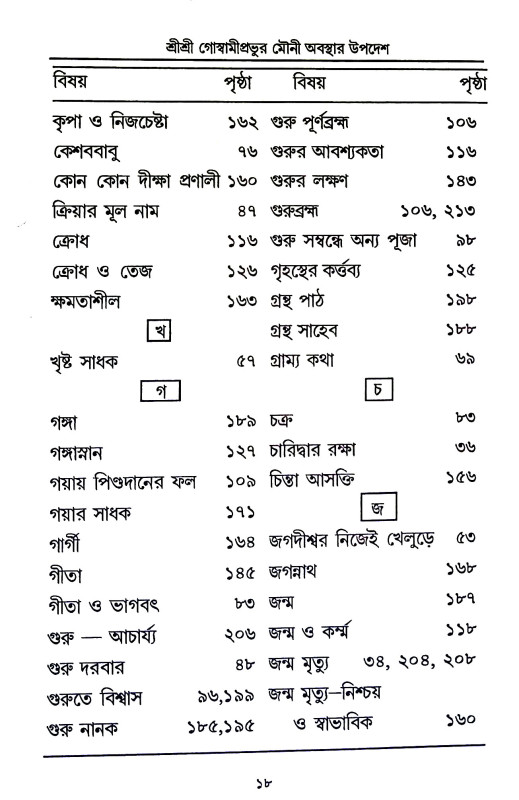 শ্রীশ্রী গোস্বামীপ্রভুর মৌনী অবস্থার উপদেশ
বিষয় পৃষ্ঠা
কৃপা ও নিজচেষ্টা ১৬২
কেশববাবু ৭৬
কোন কোন দীক্ষা প্রণালী ১৬০
ক্রিয়ার মূল নাম ৪৭
ক্রোধ ১১৬
ক্রোধ ও তেজ ১২৬
ক্ষমতাশীল ১৬৩
খ
খৃষ্ট সাধক ৫৭
গ
গঙ্গা ১৮৯
গঙ্গাস্নান ১২৭
গয়ায় পিণ্ডদানের ফল ১০৯
গয়ার সাধক ১৭১
গার্গী ১৬৪
গীতা ১৪৫
গীতা ও ভাগবৎ ৮৩
গুরু — আচার্য্য ২০৬
গুরু দরবার ৪৮
গুরুতে বিশ্বাস ৯৬,১৯৯
গুরু নানক ১৮৫,১৯৫
বিষয় পৃষ্ঠা
গুরু পূর্ণব্রহ্ম ১০৬
গুরুর আবশ্যকতা ১১৬
গুরুর লক্ষণ ১৪৩
গুরুব্রহ্ম ১০৬, ২১৩
গুরু সম্বন্ধে অন্য পূজা ৯৮
গৃহস্থের কর্ত্তব্য ১২৫
গ্রন্থ পাঠ ১৯৮
গ্রন্থ সাহেব ১৮৮
গ্রাম্য কথা ৬৯
চ
চক্র ৮৩
চারিদ্বার রক্ষা ৩৬
চিন্তা আসক্তি ১৫৬
জ
জগদীশ্বর নিজেই খেলুড়ে ৫৩
জগন্নাথ ১৬৮
জন্ম ১৮৭
জন্ম ও কর্ম্ম ১১৮
জন্ম মৃত্যু ৩৪, ২০৪, ২০৮
জন্ম মৃত্যু–নিশ্চয়
ও স্বাভাবিক ১৬০
১৮